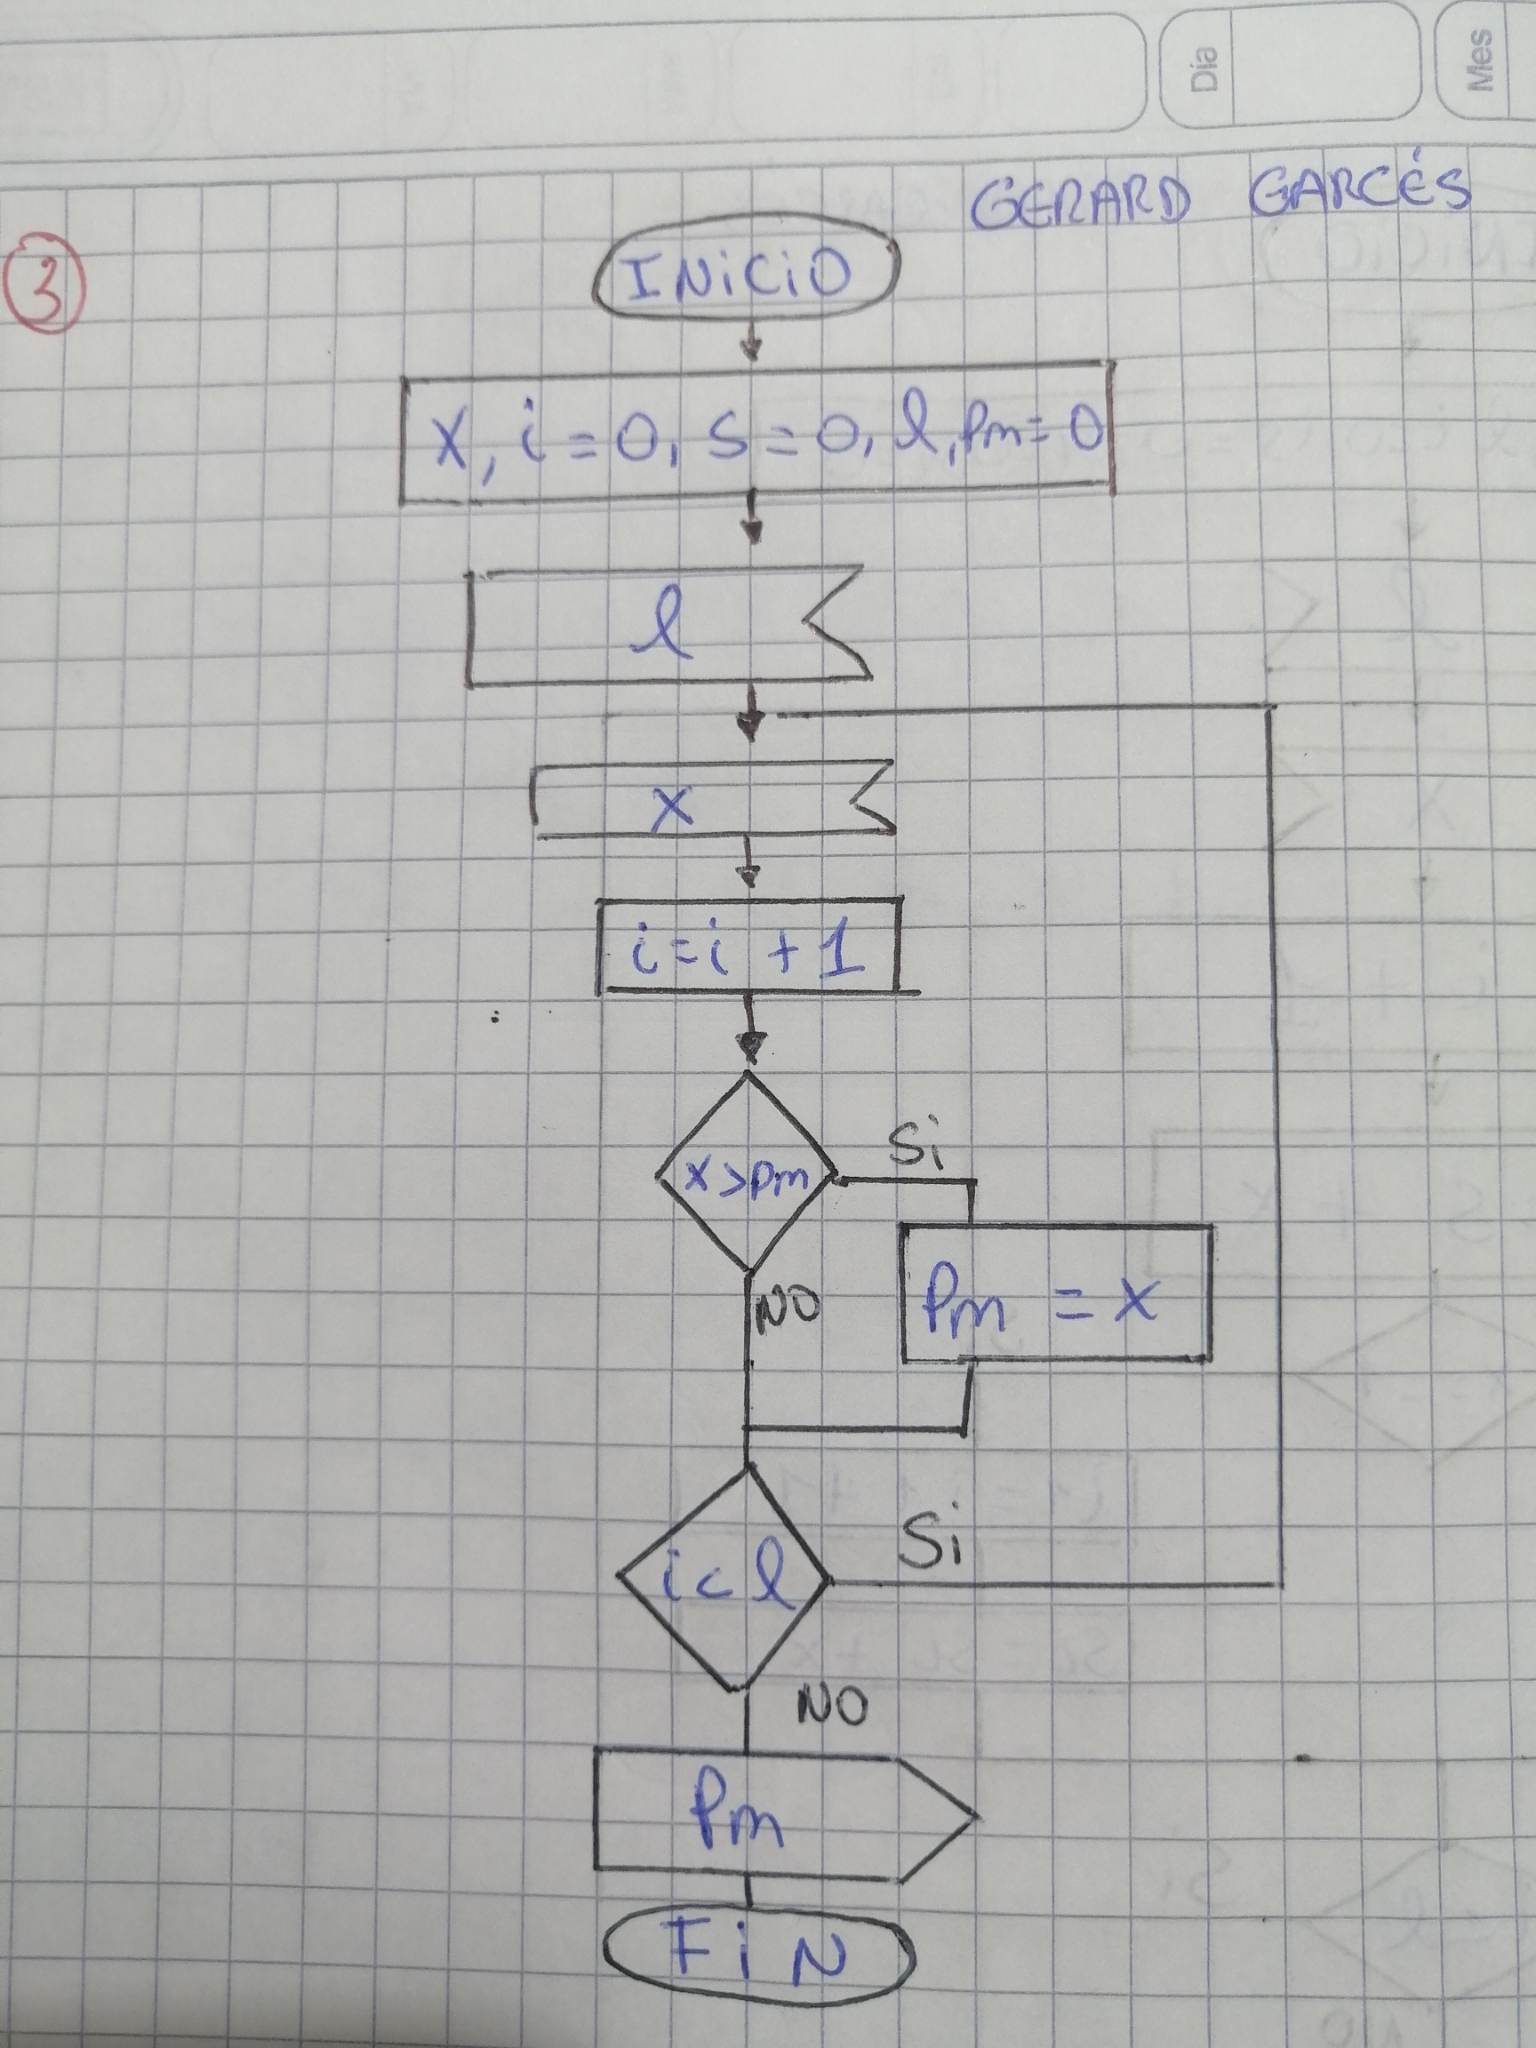 Día
Mes
GERARD GARCÉS
3
INiCiO
X, i = 0, S = 0, l, Pm = 0
l
X
i = i + 1
X > Pm
Si
NO
Pm = X
i < l
Si
NO
Pm
FiN